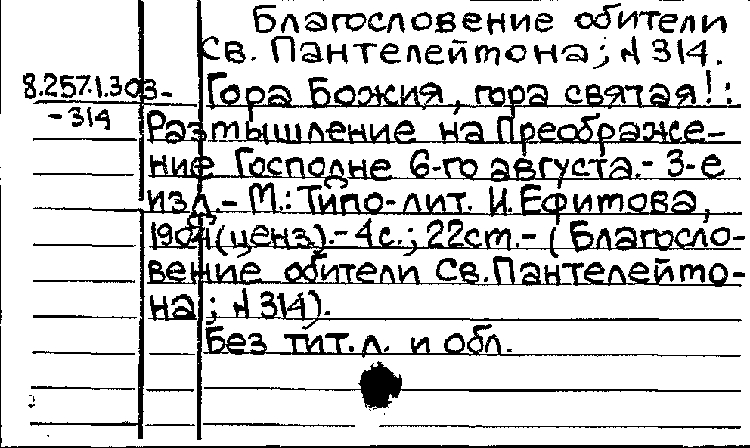 Благословение обители
Св. Пантелеймона; № 314.
8.257.1.303-
-314
Гора Божия, гора святая!:
Размышление на Преображе-
ние Господне 6-го августа.- 3-е
изд.- М.: Типо-лит. И. Ефимова,
1904 (ценз).- 4с.; 22см.- (Благосло-
вение обители Св. Пантелеймо-
на; № 314).
Без тит. л. и обл.